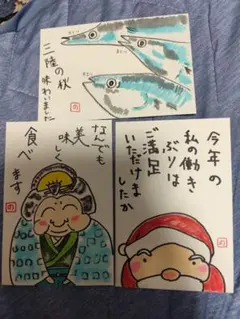 三陸の秋
味わいました
なんでも
美味しく
食べます
今年の
私の働き
ぶりは
ご満足
いただけま
したか